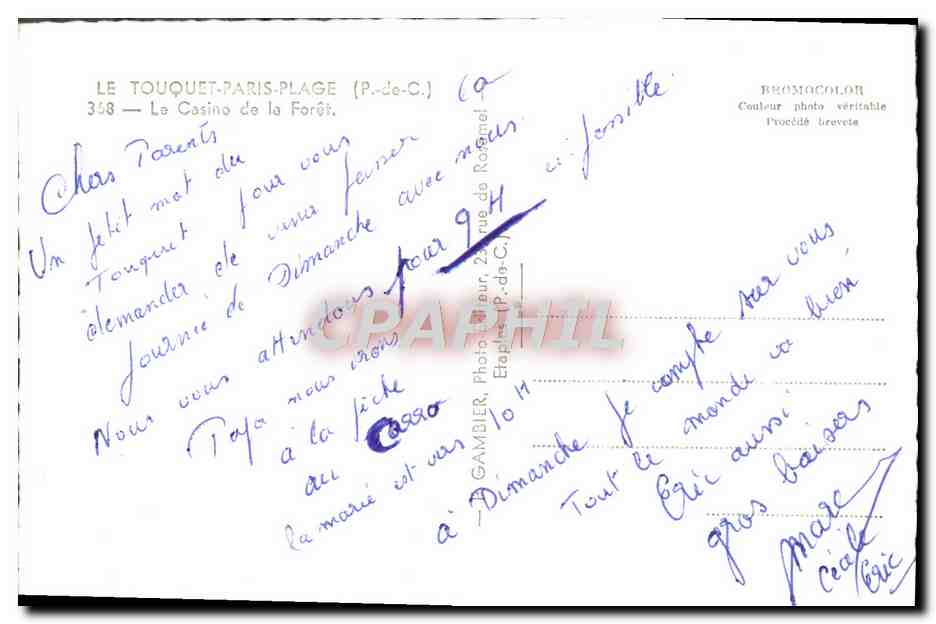 LE TOUQUET-PARIS-PLAGE (P.-de-C.)
368 — Le Casino de la Forêt.
BROMOCOLOR
Couleur photo véritable
Procédé breveté
GAMBIER, Photo éditeur, 25, rue de Rosamel
Etaples (P.-de-C.)
CPAPHIL
Chers Parents
Un petit mot du
Touquet pour vous
demander de venir passer la
journée de Dimanche avec nous.
Nous vous attendons pour 9H si possible
Papa nous irons
à la pêche
au Carro
la marié est vers 10H
à Dimanche je compte sur vous
Tout le monde va bien
Eric aussi
gros baisers
Marc
Cécile
Eric